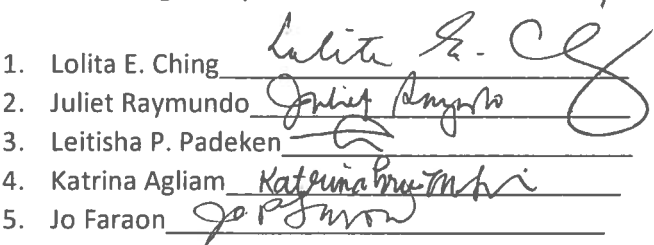 1. Lolita E. Ching Lolita E. Ching
2. Juliet Raymundo Juliet Raymundo
3. Leitisha P. Padeken
4. Katrina Agliam Katrina
5. Jo Faraon Jo P Faraon